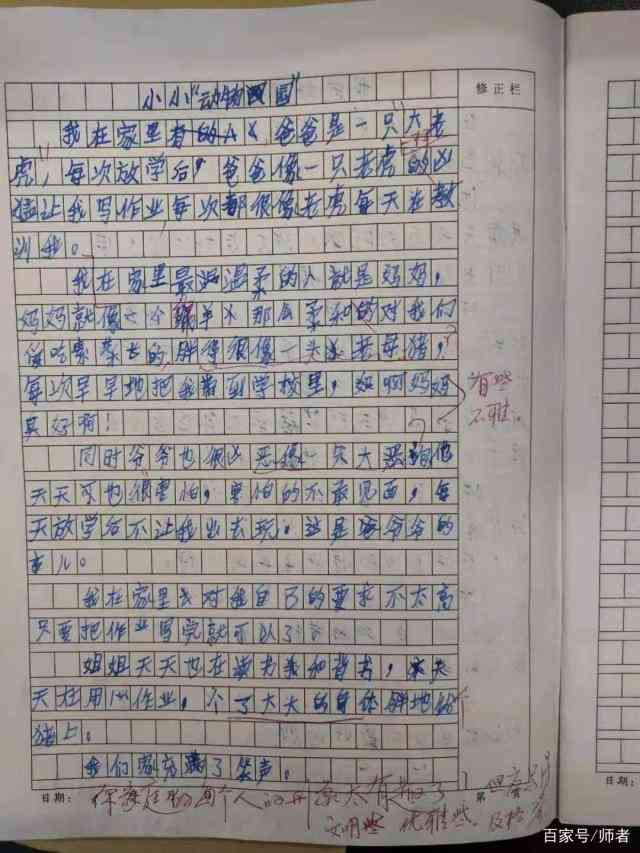 修正栏
小小"动物园"
我在家里 爸爸是一只"大老
虎,每次放学后,爸爸像一只老虎的凶
猛让我写作业,每次都很像老虎每天在教
训我。
我在家里最温柔的人就是妈妈,
妈妈就像 那么柔和的对我们
胖得很像一头 老母猪,
每次早早地把我带到学校里, 啊妈妈
真好啊!
有些
不雅。
同时爷爷也很凶恶像一只大恶狼他
天天可也很害怕,害怕的不敢见面,每
天放学后不让我出去玩。这是 爷爷的
事儿。
我在家里 对我自己的要求不太高
只要把作业写完就可以了
姐姐天天也在读书 和背书,天
天在用 作业,个 了大大的身体
猪上。
我们家充满了笑声。
日期:
第
你 每个人的 太有趣了!
文明些 优雅些。
百家号/师者